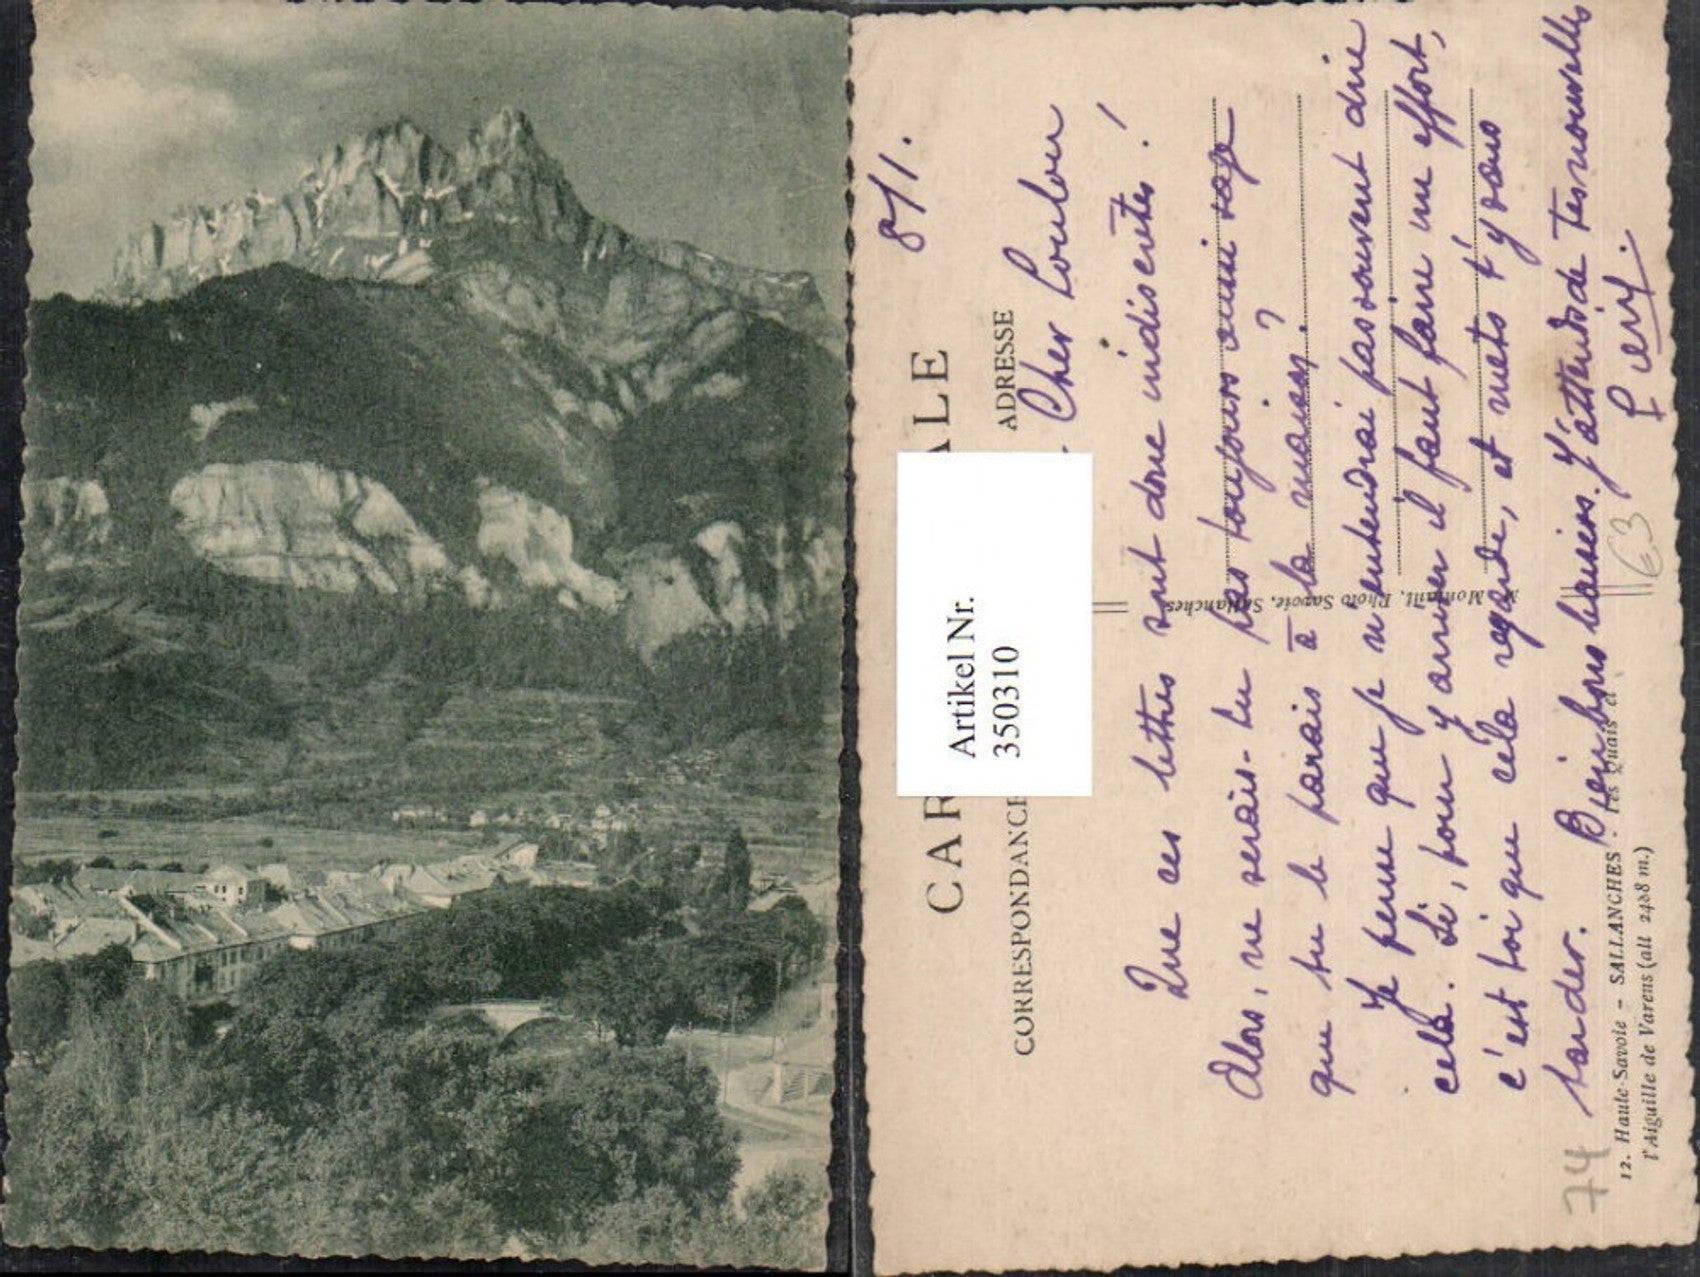 8/1.
CAR ALE
CORRESPONDANCE
ADRESSE
Artikel Nr.
350310
Cher Loulou
Que ces lettres sont donc indiscrètes !
Alors, ne serais-tu pas toujours aussi sage
que tu le parais à la maison ?
Je pense que je n'entendrai pas souvent dire
cela. Si, pour y arriver il faut faire un effort,
c'est toi que cela regarde, et mets t'y sans
tarder. Bien bons baisers. J'attends de tes nouvelles
Photo Savoie, Sallanches
12. Haute-Savoie - SALLANCHES - Les Quais et
l'Aiguille de Varens (alt 2488 m.)
74
63